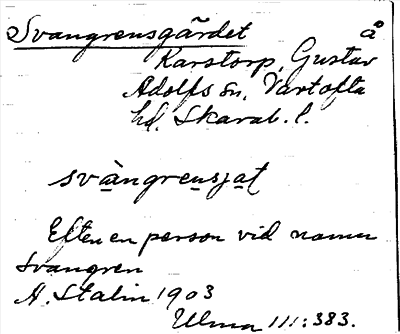 Svangrensgärdet å
Karstorp, Gustav
Adolfs sn, Vartofta
hd. Skarab. l.
svàngrensjat
Efter en person vid namn
Svangren
H. Stalin 1903
Ulma 111:383.